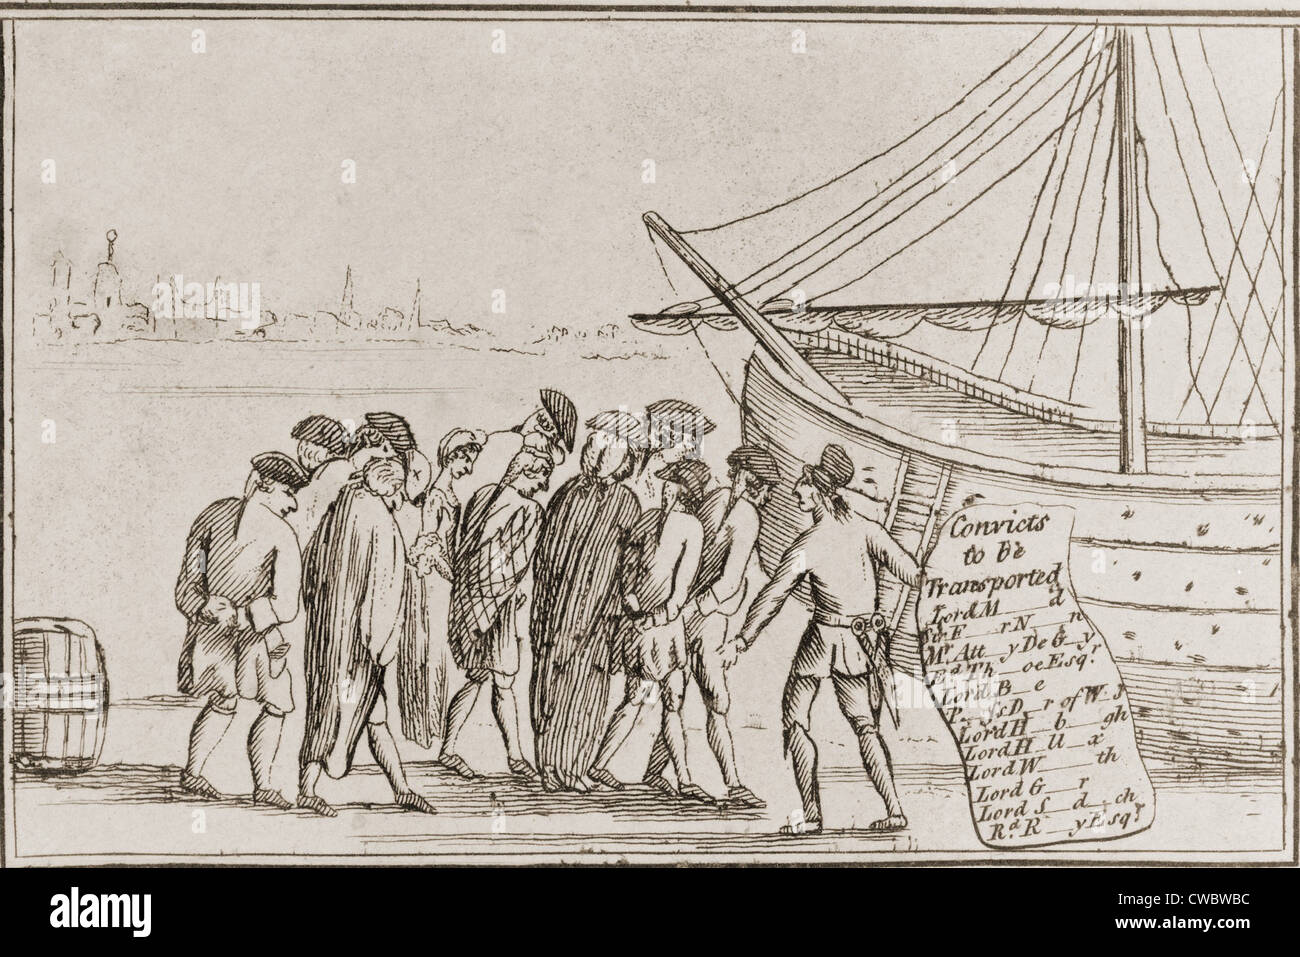 Convicts
to be
Transported
Lord M___d
Sr. F___r N___n
Mr. Att__y De G_y
Ed. Th__oe Esqr.
Lord B_e
P__ysD_r of W_s
Lord H__b__gh
Lord H_ll_x
Lord W___th
Lord G__r
Lord S_d_ch
Rd. R__y Esqr.
alamy
Image ID: CWBWBC
www.alamy.com